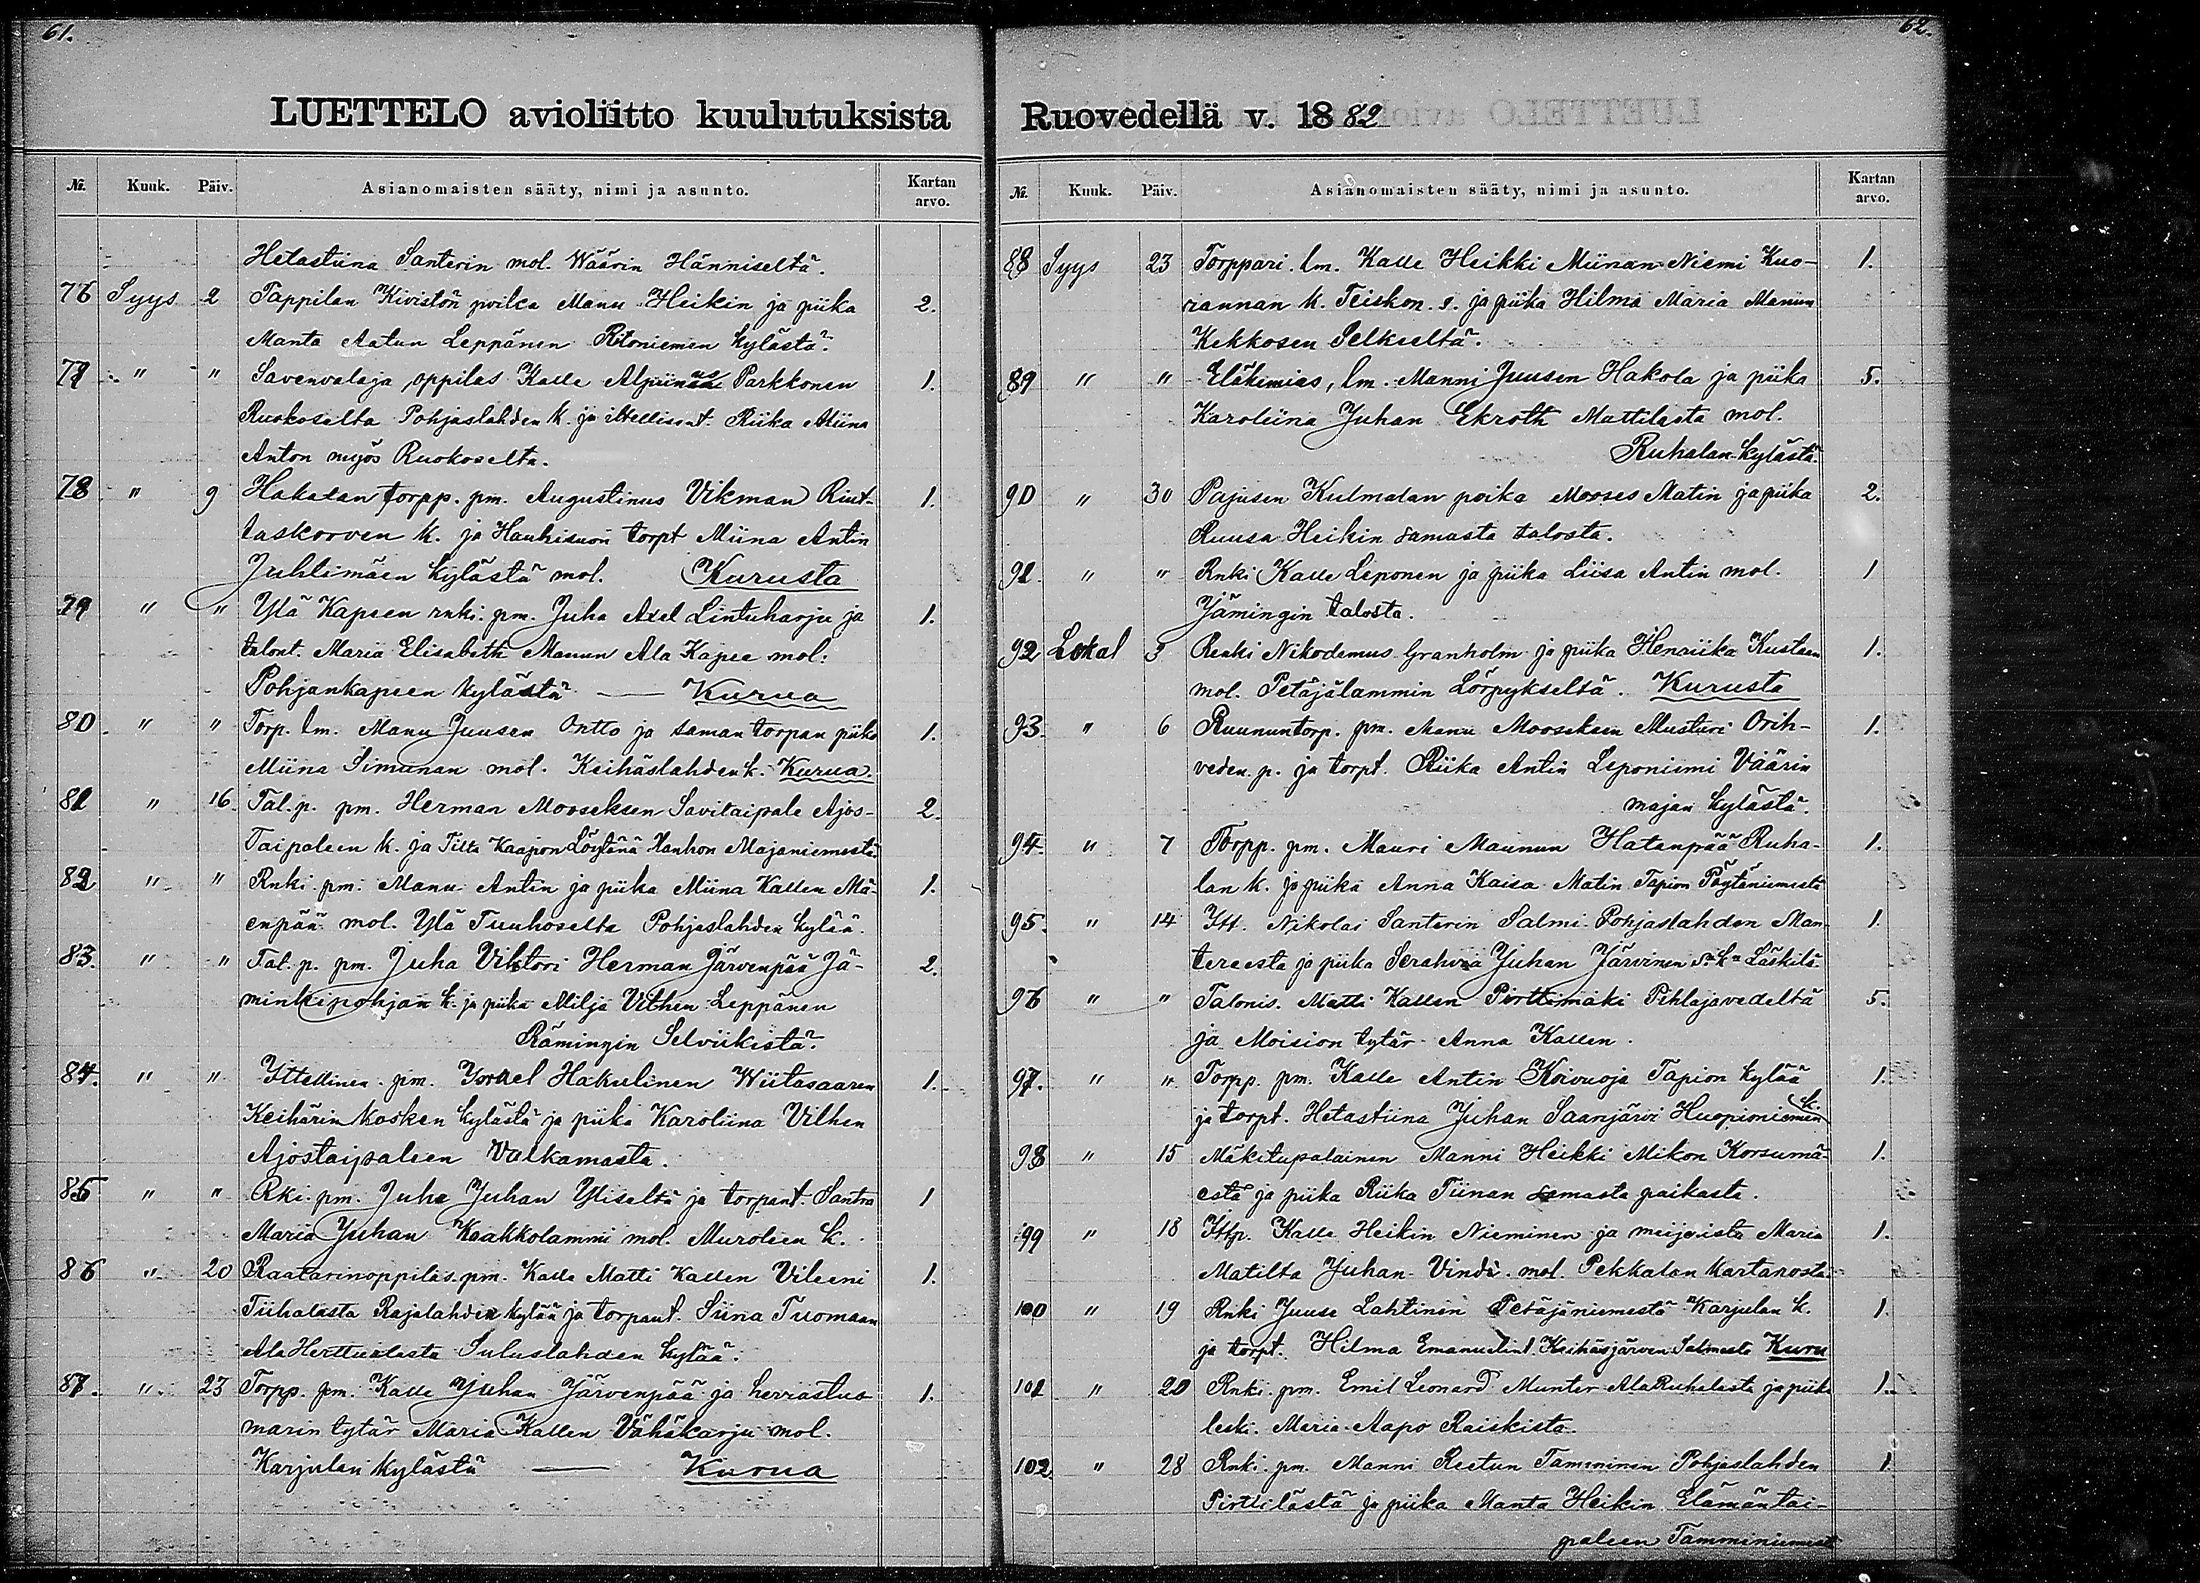 61.
LUETTELO avioliitto kuulutuksista
№. Kuuk. Päiv. Asianomaisten sääty, nimi ja asunto. Kartan arvo.
Hetastiina Santerin mol. Väärin Hänniseltä.
76 Syys 2 Tappilan Kivistön poika Manu Heikin ja piika 2.
Manta Aatun Leppänen Ritoniemen kylästä.
77 " " Savenvalaja oppilas Kalle Alpiinus Parkkonen 1.
Ruokoselta Pohjaslahden k. ja ittellisent. Riika Miina
Anton myös Ruokoselta.
78 " 9 Hakalan torpp. pm. Augustinus Vikman Riut- 1.
taskorven k. ja Hauhisuon torpt Miina Antin
Juhtimäen kylästä mol. Kurusta
79 " " Ylä Kapeen rnki. pm. Juha Axel Lintuharju ja 1.
talont. Maria Elisabeth Manun Ala Kapee mol.
Pohjankapeen kylästä — Kurua
80 " " Torp. lm. Manu Juusen Ontto ja saman torpan piika 1.
Miina Simunan mol. Keihäslahden k. Kurua.
81 " 16. Tal. p. pm. Herman Mooseksen Savitaipale Ajos- 2.
Taipaleen k. ja Tilta Kaapon Löytänä Hanhon Majaniemestä.
82 " " Rnki pm. Manu Antin ja piika Miina Kallen Mä- 1.
enpää mol. Ylä Tuuhoselta Pohjaslahden kylää.
83. " " Tal. p. pm. Juha Vihtori Herman Järvenpää Jä- 2.
minkipohjan k. ja piika Milja Vilhen Leppänen
Rämingin Selviikistä.
84. " " Ittellinen pm. Israel Hakulinen Wiitasaaren 1.
Keihärinkosken kylästä ja piika Karoliina Vilhen
Ajostaipaleen Valkamasta.
85 " " Rki. pm. Juha Juhan Yliseltä ja torpant. Santra 1
Maria Juhan Kaakkolammi mol. Muroleen k.
86 " 20 Raatarinoppilas. pm. Kalle Matti Kallen Vileeni 1.
Tiihalasta Rajalahden kylää ja torpant. Siina Tuomaan
Ala Herttualasta Suluslahden kylää.
87. " 23 Torpp. pm. Kalle Juhan Järvenpää ja herrastus 1.
marin tytär Maria Kallen Vähäkarju mol.
Karjulan kylästä — Kurua
62.
Ruovedellä v. 1882
№. Kuuk. Päiv. Asianomaisten sääty, nimi ja asunto. Kartan arvo.
88 Syys 23 Torppari. lm. Kalle Heikki Miinan Niemi Kuo- 1.
rannan k. Teiskon. s. ja piika Hilma Maria Manun
Kekkosen Selkieltä.
89 " " Eläkemies, lm. Manni Juusen Hakola ja piika 5.
Karoliina Juhan Ekroth Mattilasta mol.
Ruhalan kylästä.
90 " 30 Pajusen Kulmalan poika Mooses Matin ja piika 2.
Ruusa Heikin samasta talosta.
91. " " Rnki Kalle Leponen ja piika Liisa Antin mol. 1
Jämingin talosta.
92 Lokal 3 Renki Nikodemus Granholm ja piika Henriika Kustaan 1.
mol. Petäjälammin Lörpykseltä. Kurusta
93. " 6 Ruununtorp. pm. Manu Mooseksen Musturi Orih- 1.
veden. p. ja torpt. Riika Antin Leponiemi Väärin
majan kylästä.
94. " 7 Torpp. pm. Mauri Maunun Hatanpää Ruha- 1.
lan k. ja piika Anna Kaisa Matin Tapion Pöytäniemestä
95. " 14 Itt. Nikolai Santerin Salmi Pohjaslahden Man- 1.
tereesta ja piika Serahvia Juhan Järvinen sn kn Läskilä
96 " " Talonis. Matti Kallen Pirttimäki Pihlajavedeltä 5.
ja Moision tytär Anna Kallen.
97. " " Torpp. pm. Kalle Antin Koivuoja Tapion kylää 1.
ja torpt. Hetastiina Juhan Saarijärvi Huopioniemen k.
98 " 15 Mäkitupalainen Manni Heikki Mikon Korsumä- 1.
estä ja piika Riika Tiinan samasta paikasta.
99 " 18 Ittp. Kalle Heikin Nieminen ja meijerista Maria 1.
Matilta Juhan Vindi mol. Pekkalan kartanosta.
100 " 19 Rnki Juuse Lahtinen Petäjäniemestä Karjulan k. 1.
ja torpt. Hilma Emanuelint. Keihäsjärven Salmesta Kuru
101 " 20 Rnki. pm. Emil Leonard Munter Ala Ruhalasta ja piika 1.
leski Maria Aapo Raiskista.
102 " 28 Rnki. pm. Manni Reetun Tamminen Pohjaslahden 1
Pirttilästä ja piika Manta Heikin Elämäntai-
paleen Tamminiemest